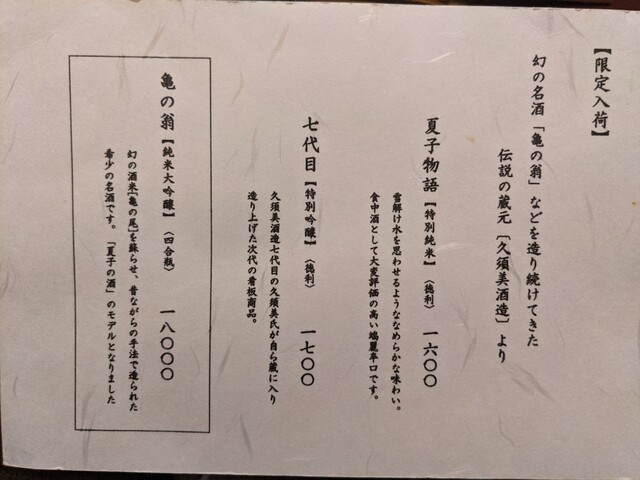 【限定入荷】
幻の名酒「亀の翁」などを造り続けてきた
伝説の蔵元〔久須美酒造〕より
夏子物語【特別純米】〈徳利〉 一六〇〇
雪解け水を思わせるようななめらかな味わい。
食中酒として大変評価の高い端麗辛口です。
七代目【特別吟醸】〈徳利〉 一七〇〇
久須美酒造七代目の久須美氏が自ら蔵に入り
造り上げた次代の看板商品。
亀の翁【純米大吟醸】〈四合瓶〉 一八〇〇〇
幻の酒米[亀の尾]を蘇らせ、昔ながらの手法で造られた
希少の名酒です。「夏子の酒」のモデルとなりました